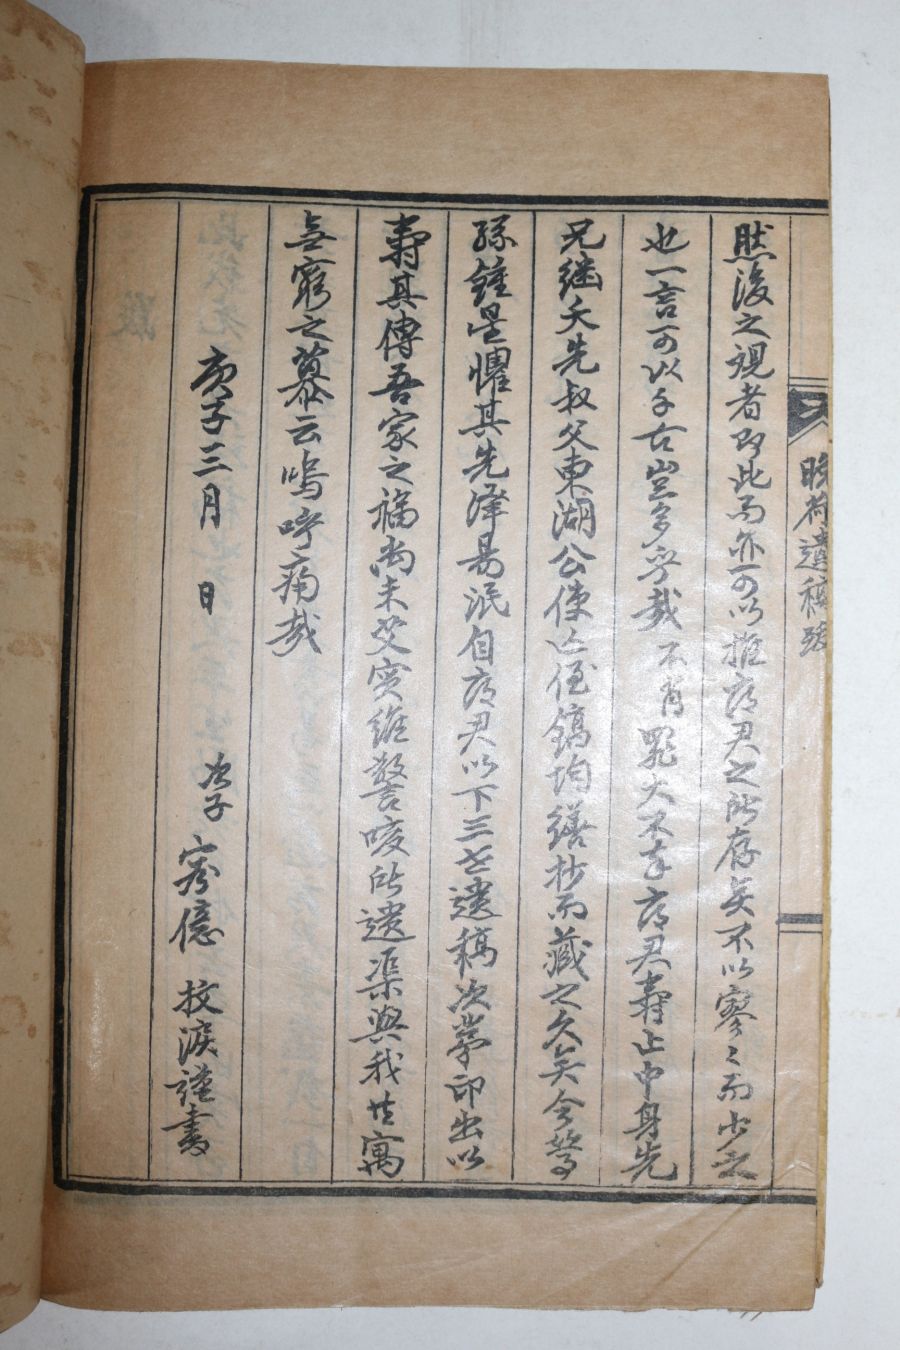 晩荷遺稿跋
然後之覌者即此而亦可以推府君之所存矣不以寥〻而少之
也一言可以千古豈多乎哉 不肖罪大不幸府君壽止中身先
兄継夭先叔父東湖公使亡侄鎬均繕抄而藏之久矣今
孫鍾昰懼其先澤易泯自府君以下三世遺稿次第印出以
壽其傳吾家之福尚未艾實維警咳所遺渠與我共寓
無窮之慕云嗚呼痛哉
庚子三月 日 次子 億 抆淚謹書